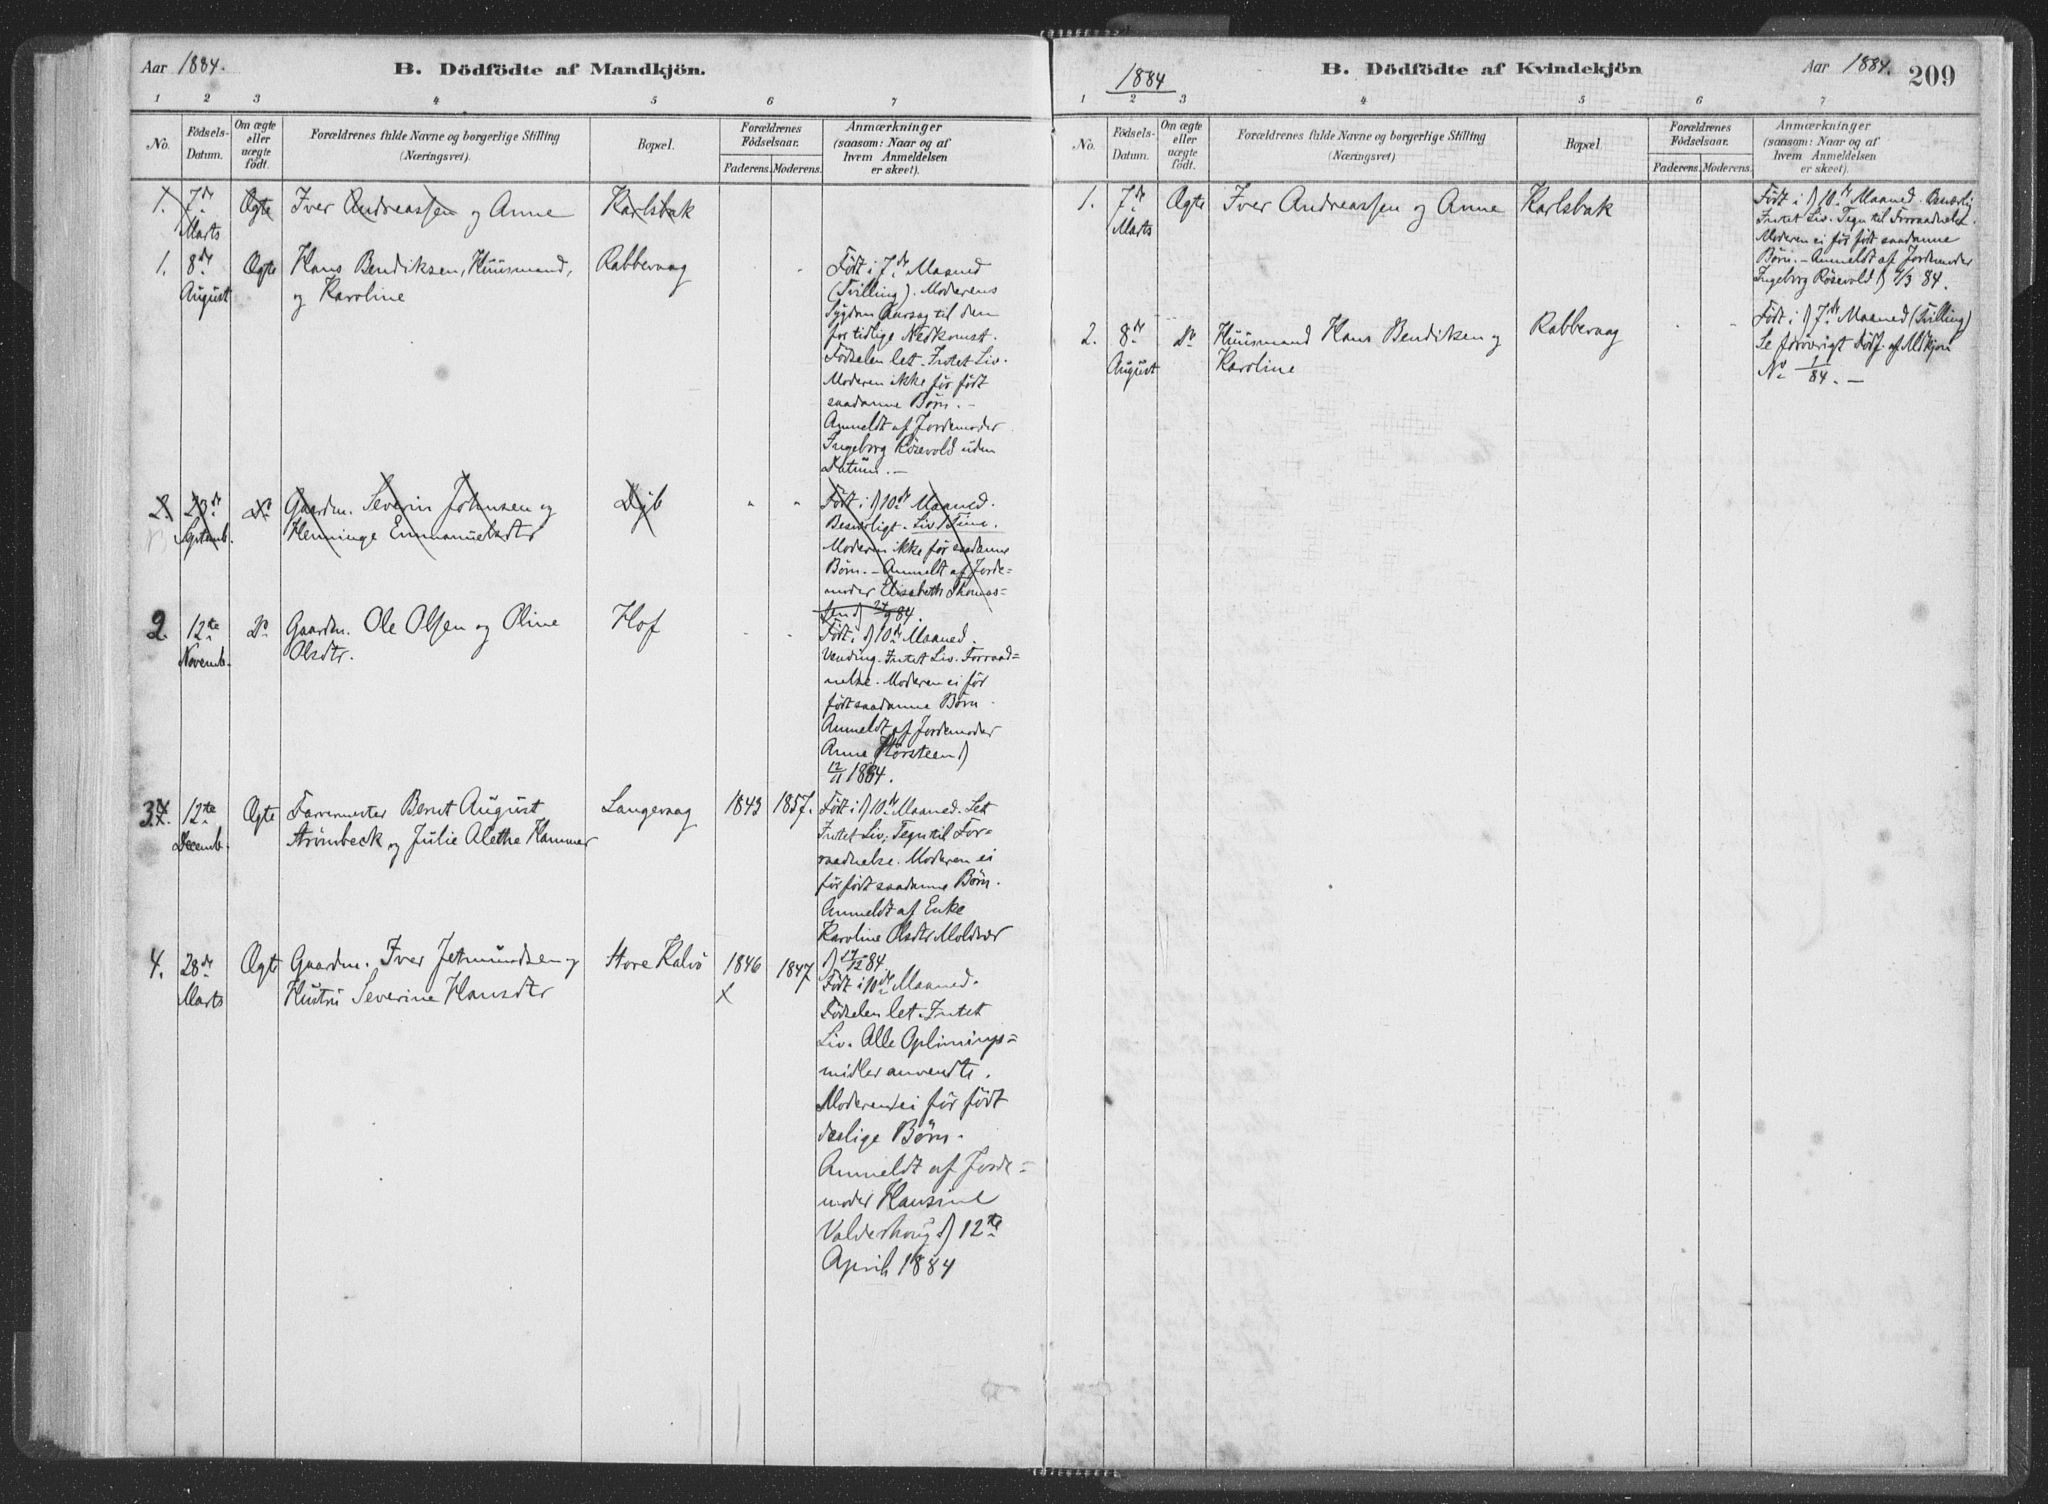 Aar 1884.
B. Dödfödte af Mandkjön.
1 2 3 4 5 6 7
No.
Födsels-
Datum.
Om ægte
eller
uægte
födt.
Forældrenes fulde Navne og borgerlige Stilling
(Næringsvei).
Bopæl.
Forældrenes
Födselsaar.
Faderens. Moderens.
Anmærkninger
(saasom: Naar og af
hvem Anmeldelsen
er skeet).
1. 7de Marts Ægte Iver Andreassen og Anne Karlsbak
1. 8de August Ægte Hans Bendiksen, Huusmand,
og Karoline
Rabbevaag " "
Født i 7de Maaned
(Tvilling). Moderens
Sygdom Aarsag til den
for tidlige Nedkomst.
Fødselen let. Intet Liv.
Moderen ikke før født
saadanne Børn. –
Anmeldt af Jordemoder
Ingeborg Røsevold uden
Datum. –
2. 23de Septemb. Do Gaardm. Severin Johnsen og
Henninge Emmanuelsdtr
Dyb " "
Født i d) 10de Maaned.
Besværligt. Liv 1 Time.
Moderen ikke før saadanne
Børn. – Anmeldt af Jorde=
moder Elisabeth Thomas=
sen d) 27/9 84.
2. 12te Novemb. Do Gaardm. Ole Olsen og Oline
Olsdtr.
Hof " "
Født i d) 10de Maaned.
Vending. Intet Liv. Forraad=
nelse. Moderen ei før
født saadanne Børn.
Anmeldt af Jordemoder
Anne Horsteen d)
12/11 1884.
3. 12te Decemb. Ægte Farvermester Bernt August
Strømbeck og Julie Alethe Hammer
Langevaag 1843 1857.
Født i d) 10de Maaned. Let
Intet Liv; Tegn til For=
raadnelse. Moderen ei
før født saadanne Børn.
Anmeldt af Enke
Karoline Olsdtr Moldvær
d) 17/12 84.
4. 28de Marts Ægte Gaardm. Iver Jetmundsen og
Hustru Severine Hansdtr
Store Kalvø 1846 1847
x
Født i 10de Maaned.
Fødselen let. Intet
Liv. Alle Oplivnings=
midler anvendte.
Moderen ei før født
deslige Børn.
Anmeldt af Jorde=
moder Hansine
Valderhaug d) 12te
April 1884
1884
B. Dödfödte af Kvindekjön
Aar 1884.
209
1 2 3 4 5 6 7
No.
Födsels-
Datum.
Om ægte
eller
uægte
födt.
Forældrenes fulde Navne og borgerlige Stilling
(Næringsvei)
Bopæl.
Forældrenes
Födselsaar.
Faderens. Moderens.
Anmærkninger
(saasom: Naar og af
hvem Anmeldelsen
er skeet).
1. 7de Marts Ægte Iver Andreassen og Anne Karlsbak
Født i d) 10de Maaned. Besværlig
Intet Liv. Tegn til Forraadnelse.
Moderen ei før født saadanne
Børn. – Anmeldt af Jordemoder
Ingeborg Røsevold d) 9/3 84.
2. 8de August Do Huusmand Hans Bendiksen og
Karoline
Rabbevaag " "
Født i d) 7de Maaned (Tvilling)
Se forøvrigt Dødf. af Mdkjøn
No 1/84. –